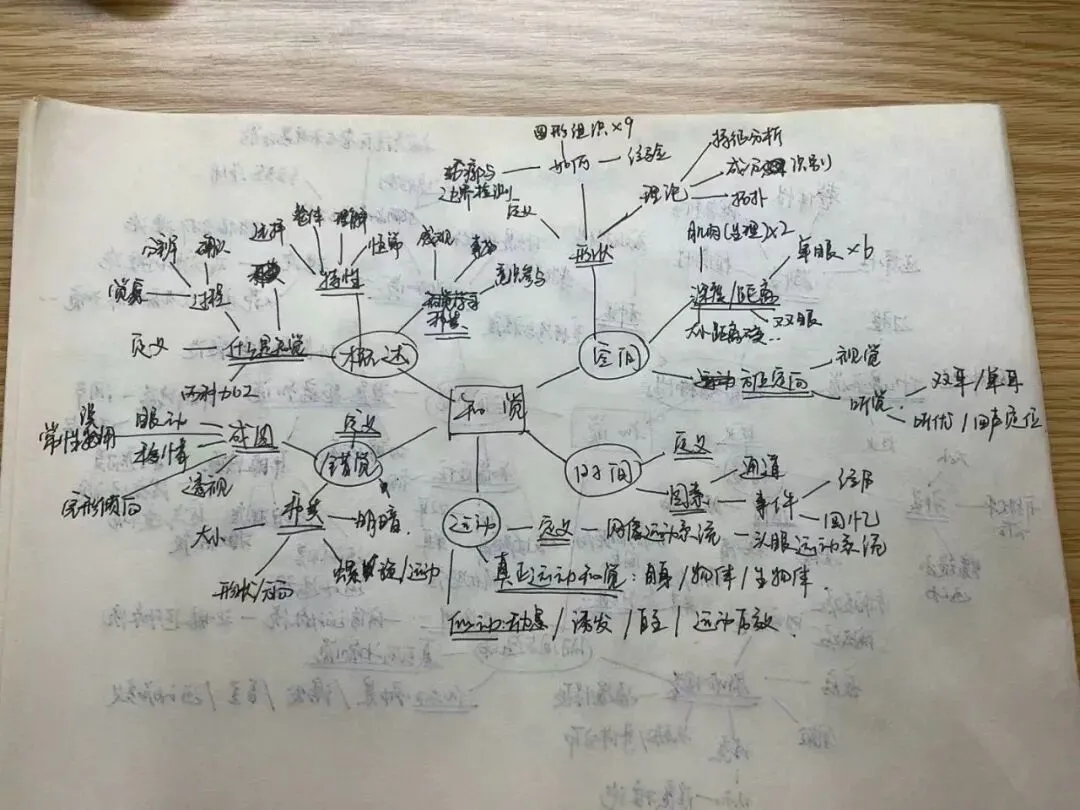 知觉
概述
什么是知觉
定义
过程
觉察
分辨
确认
选择
特性
整体
理解
恒常
意识参与
两种加工
空间
形状
定义
轮廓与
边界检测
如何
图形组织×9
经验
理论
特征分析
成分识别
拓扑
深度/距离
肌肉(生理)×2
单眼×6
双眼
方位定向
视觉
听觉
双耳/单耳
听优/回声定位
时间
定义
因素
通道
事件
经历
回忆
运动
定义
网像运动系流
头眼运动系流
真正运动知觉:自身/物体/生物体.
似动:动景/诱发/自主/运动后效.
错觉
定义
成因
眼动
移情
透视
常性误用
完形倾向
种类
大小
形状/方向
螺旋/运动
明暗